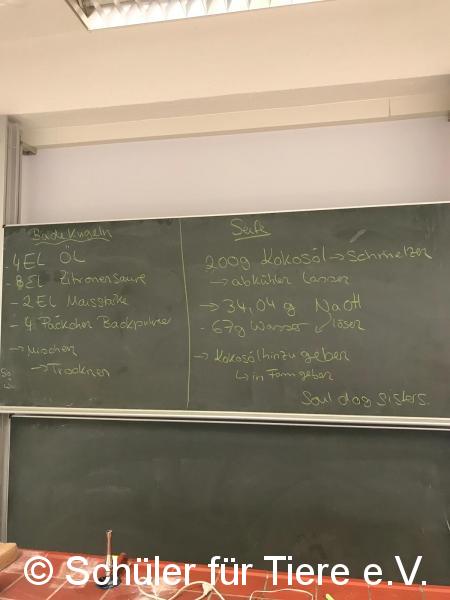 Badekugeln
- 4 EL ÖL
- 8 EL Zitronensäure
- 2 EL Maisstärke
- 4 Päckchen Backpulver
→ mischen
→ Trocknen
Seife
200g Kokosöl → schmelzen
→ abkühlen lassen
→ 34,04 g NaOH
- 67g Wasser lösen
→ Kokosöl hinzugeben
↳ in Form geben
Soul dog sisters.
© Schüler für Tiere e.V.